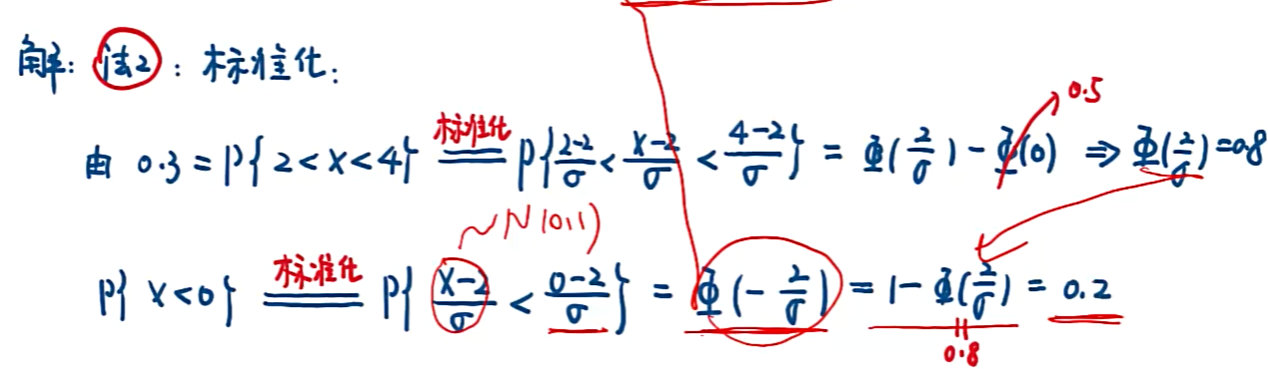 解: 法2: 标准化:
0.5
由 0.3 = P{2<X<4} 标准化 P{(2-2)/σ < (X-2)/σ < (4-2)/σ} = Φ(2/σ) - Φ(0) ⇒ Φ(2/σ)=0.8
~N(0,1)
P{X<0} 标准化 P{(X-2)/σ < (0-2)/σ} = Φ(-2/σ) = 1-Φ(2/σ) = 0.2
0.8